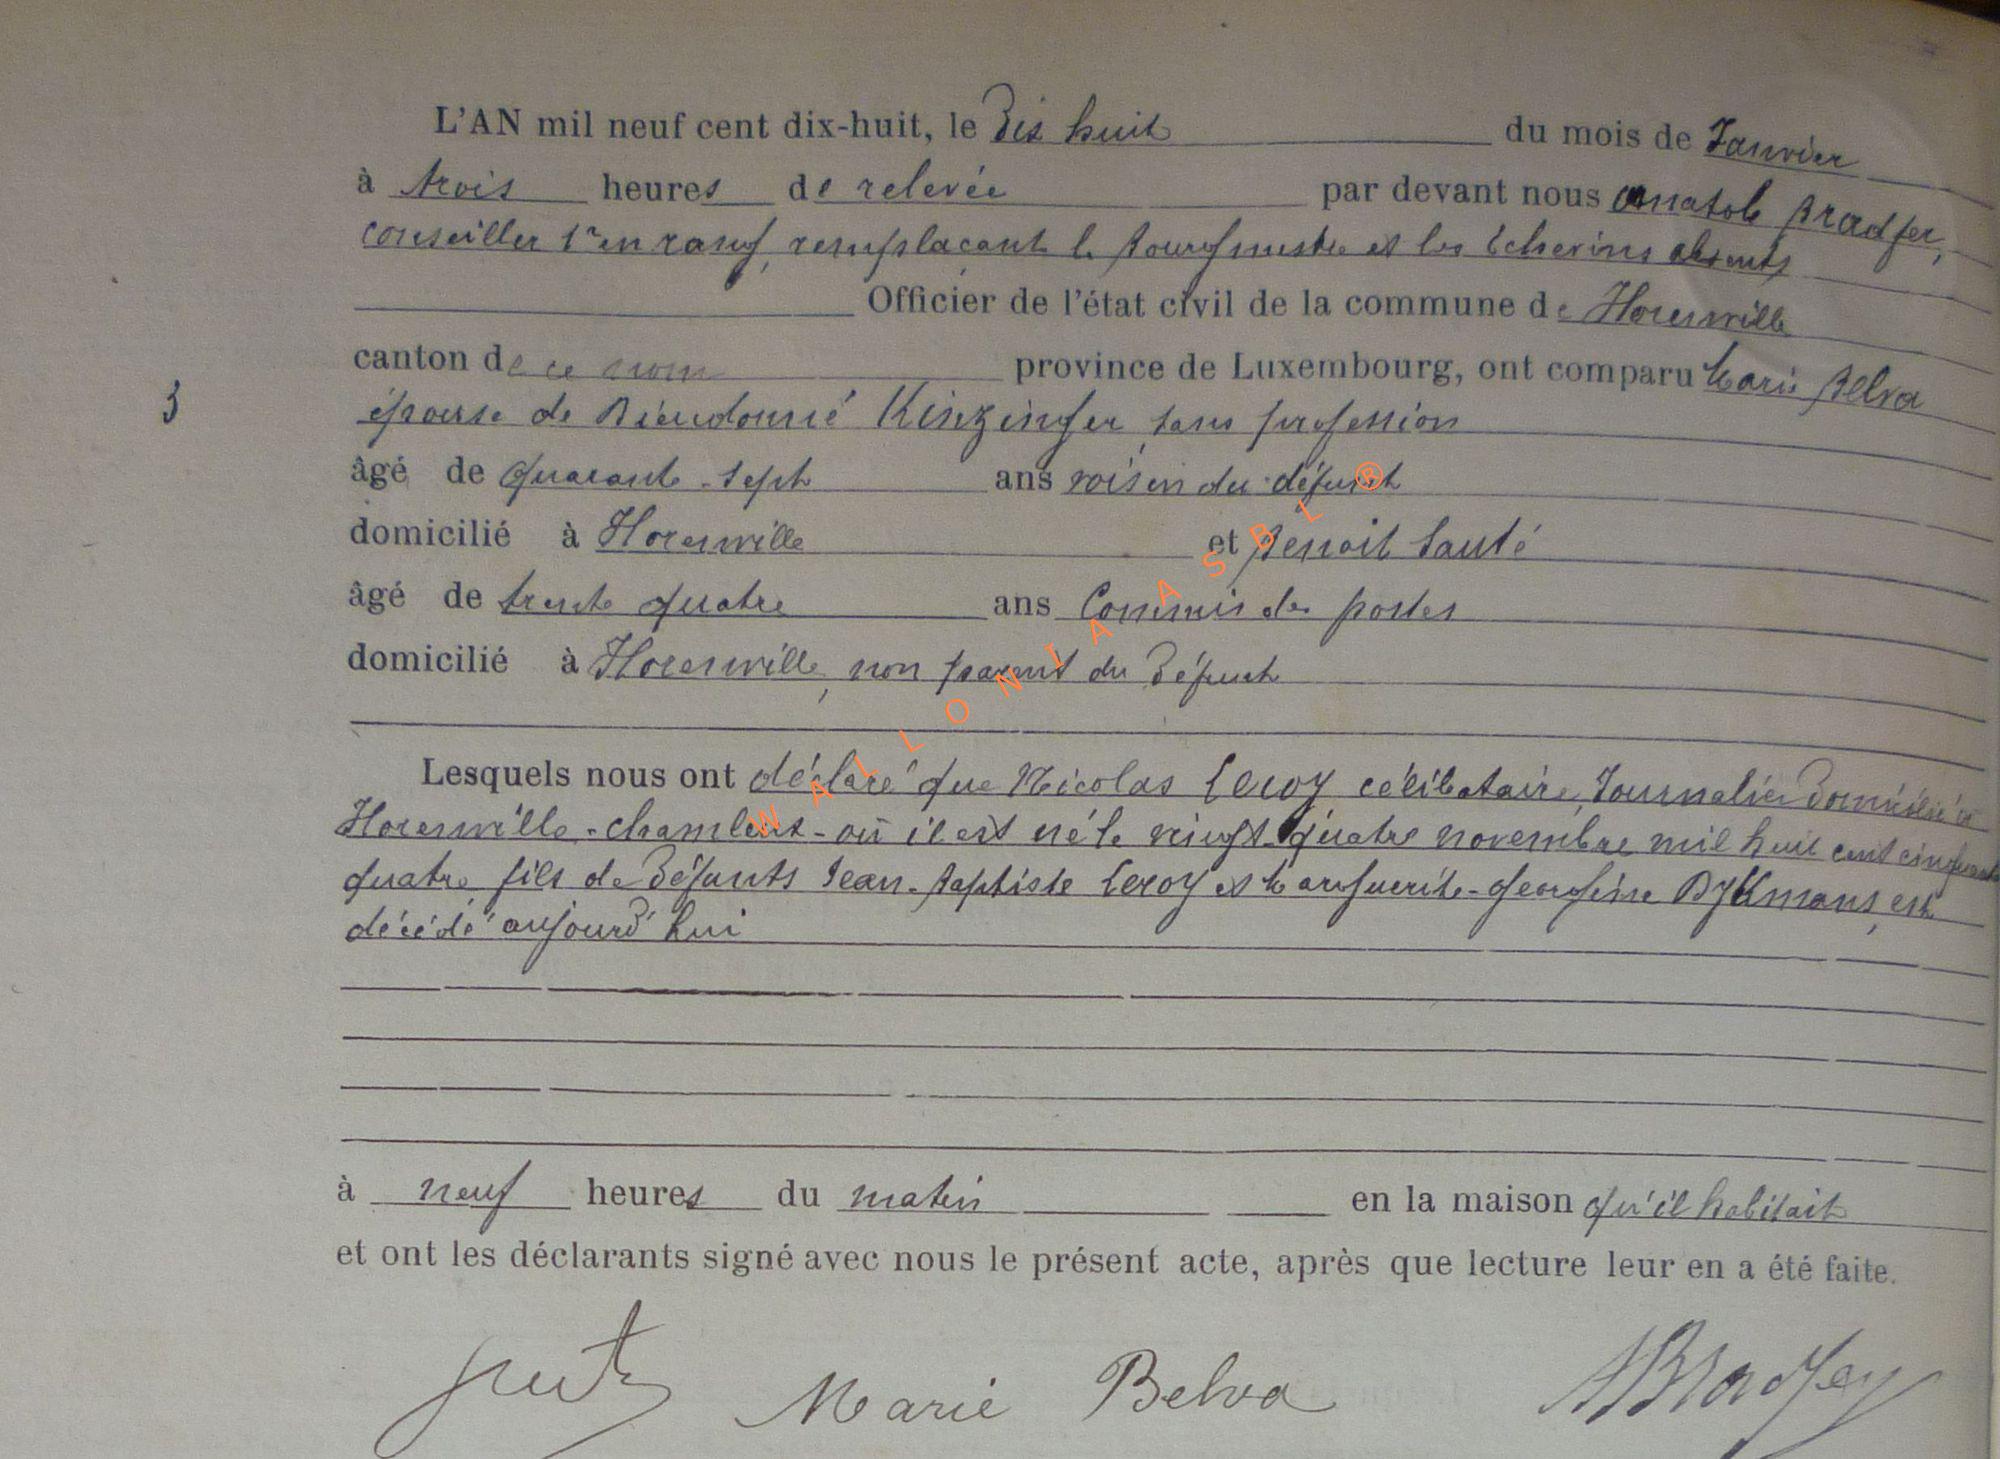 L'AN mil neuf cent dix-huit, le Dix huit du mois de Janvier
à trois heures de relevée par devant nous Anatole Bradfer,
conseiller 1er en rang, remplaçant le Bourgmestre et les Echevins absents
Officier de l'état civil de la commune de Florenville
canton de ce nom province de Luxembourg, ont comparu Marie Belva
3
épouse de Dieudonné Kinzinger, sans profession
âgé de quarante-sept ans voisin du défunt
domicilié à Florenville et Benoit
âgé de trente quatre ans Commis des postes
domicilié à Florenville, non parent du Défunt
Lesquels nous ont déclaré que Nicolas Leroy célibataire, Journalier Domicilié à
Florenville-chameleux-où il est né le vingt-quatre novembre mil huit cent cinquante
quatre fils de Défunts Jean-Baptiste Leroy et Marguerite-georgine Dykmans, est
décédé aujourd'hui
à neuf heures du matin en la maison qu'il habitait
et ont les déclarants signé avec nous le présent acte, après que lecture leur en a été faite.
Marie Belva ABradfer
WALLONIA ASBL ®